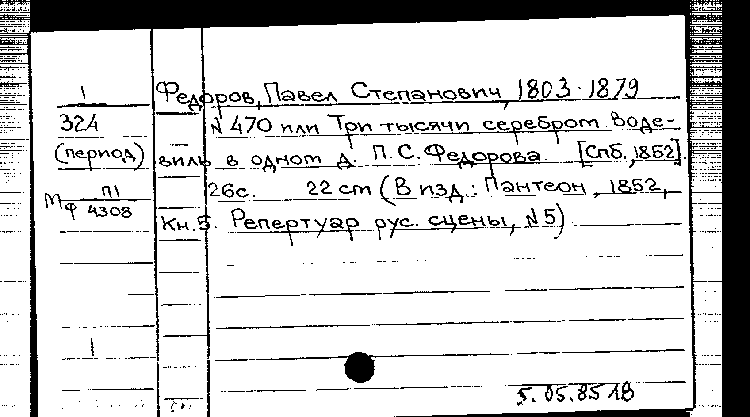 1
Федоров, Павел Степанович, 1803-1879
324
(период)
М п1
ф 4308
N 470 или Три тысячи серебром. Воде-
виль в одном д. П.С. Федорова. [Спб., 1852].
26с. 22 cm (В изд.: Пантеон, 1852,
Кн.5. Репертуар рус. сцены, N5)
1
5.05.85